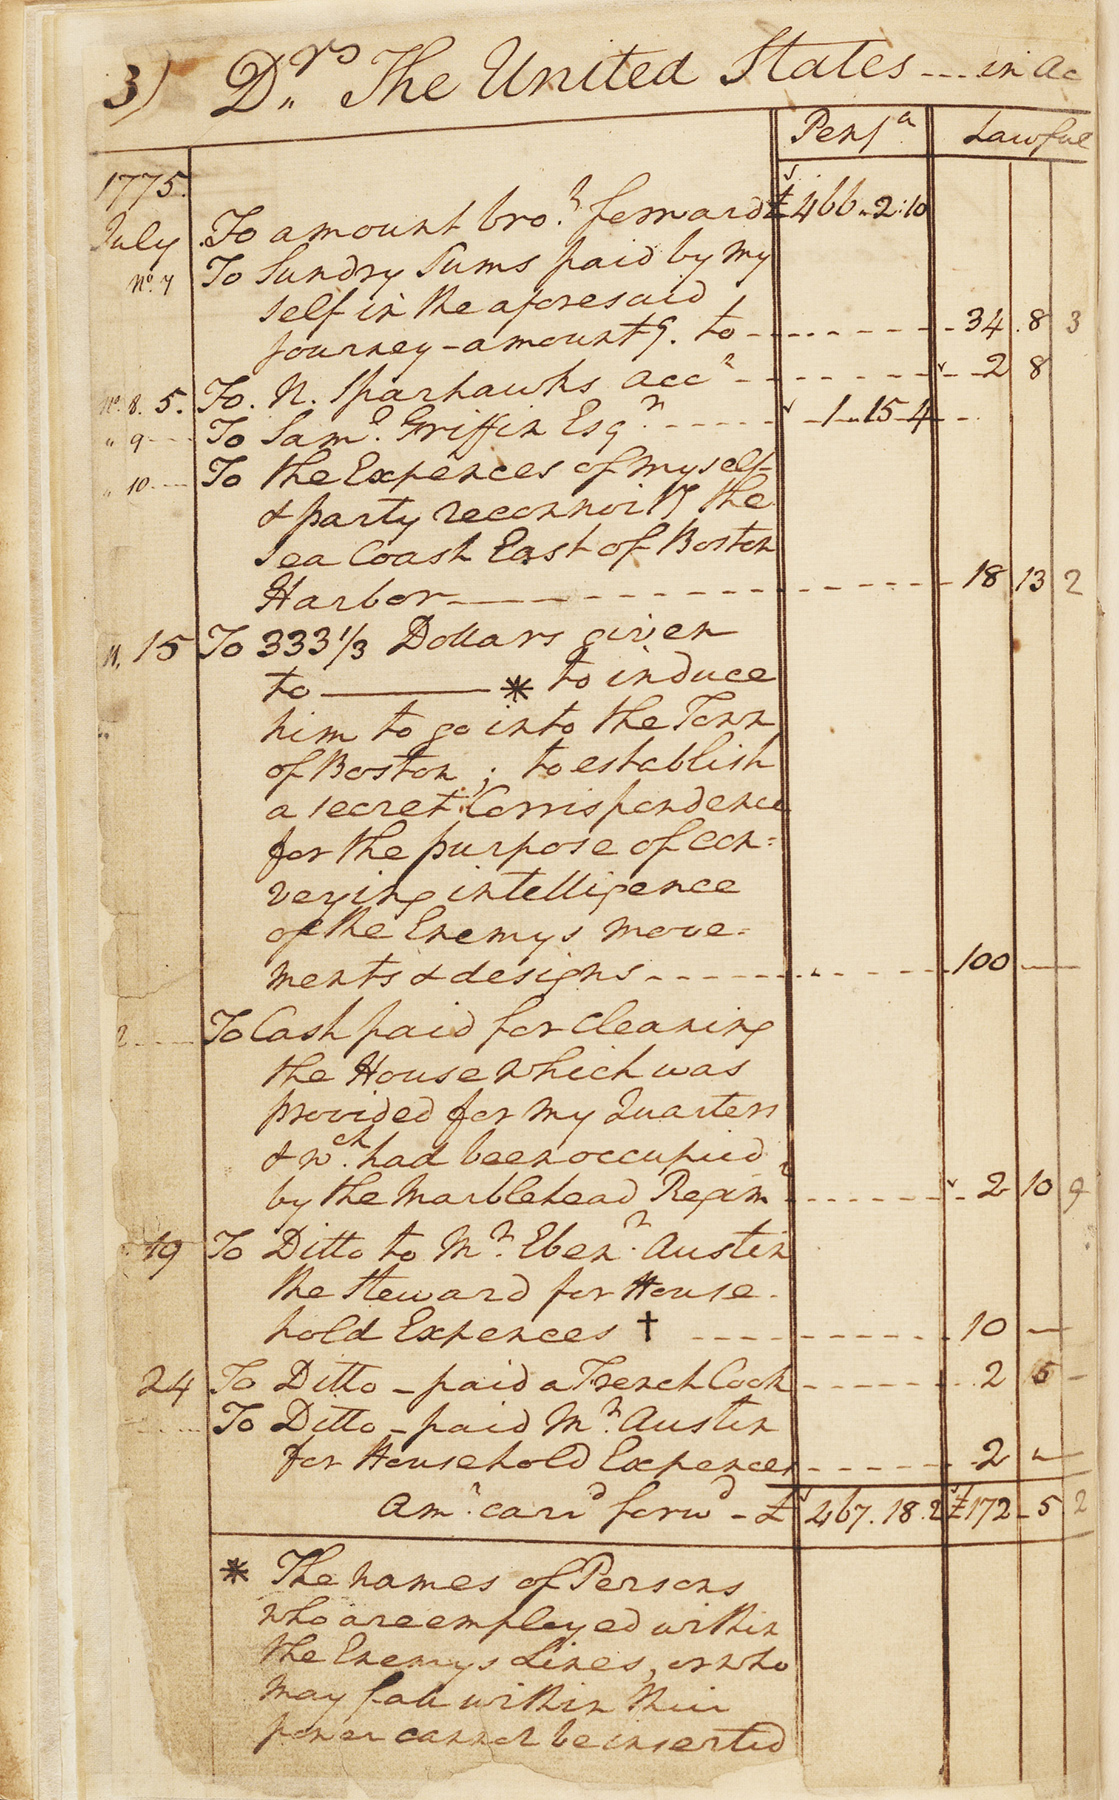 3) D,,rs The United States --- in ac
Pensa. Lawful
1775.
July To amount bro.t forward £466,,2:10
No. 7 To Sundry Sums paid by my
self in the aforesaid
journey - amountg. to - 34 .8 3
No. 8. 5. To. N. Sparhawks acct - 2 8
" 9 To Saml. Griffin Esqr. - 1,,15-4
" 10 To the Expences of myself
& party reconnoitg the
Sea Coast East of Boston
Harbor - 18 13 2
11. 15 To 333 1/3 Dollars given
to ——— * to induce
him to go into the Town
of Boston ; to establish
a secret Corrispondence
for the purpose of con=
veying intelligence
of the Enemys move-
ments & designs - 100 —
2 To Cash paid for cleaning
the House which was
provided for my Quarters
& wch. had been occupied
by the Marblehead Regimt - 2 10 9
19 To Ditto to Mr. Ebenr. Austin
the Steward for House-
hold Expences † - 10 —
24 To Ditto - paid a French Cook - 2 5 -
To Ditto - paid Mr. Austin
for Household Expences - 2 "
Amt. card forwd - £ 467.18.2 £172 - 5 2
* The names of Persons
who are employed within
the Enemys Lines, or who
may fall within their
power cannot be inserted